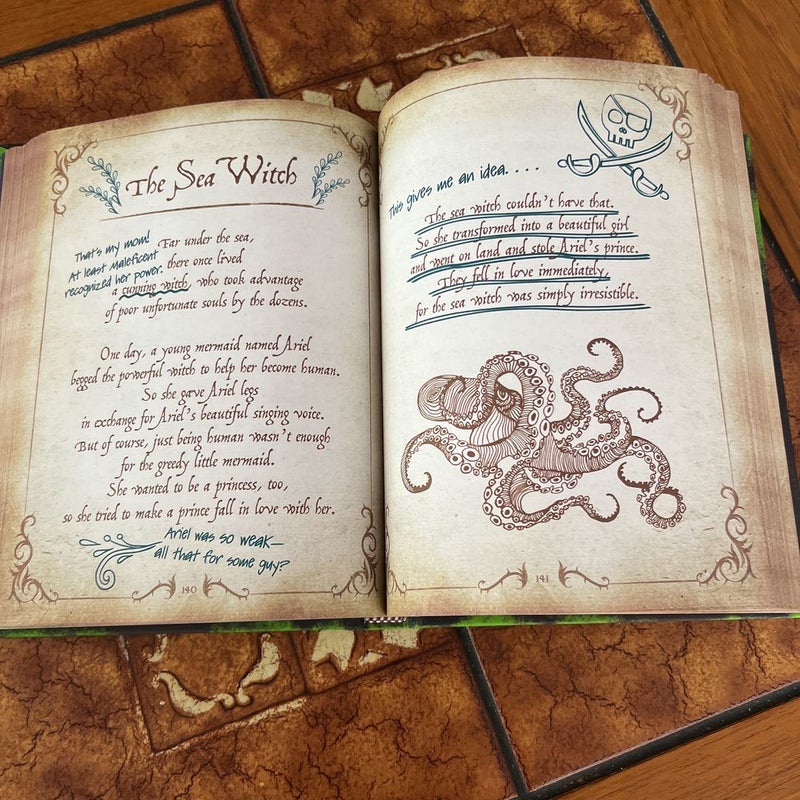 The Sea Witch
That's my mom!
At least Maleficent
recognized her power.
Far under the sea,
there once lived
a cunning witch, who took advantage
of poor unfortunate souls by the dozens.
One day, a young mermaid named Ariel
begged the powerful witch to help her become human.
So she gave Ariel legs
in exchange for Ariel's beautiful singing voice.
But of course, just being human wasn't enough
for the greedy little mermaid.
She wanted to be a princess, too,
so she tried to make a prince fall in love with her.
Ariel was so weak—
all that for some guy?
140
This gives me an idea. . . .
The sea witch couldn't have that.
So she transformed into a beautiful girl
and went on land and stole Ariel's prince.
They fell in love immediately,
for the sea witch was simply irresistible.
141